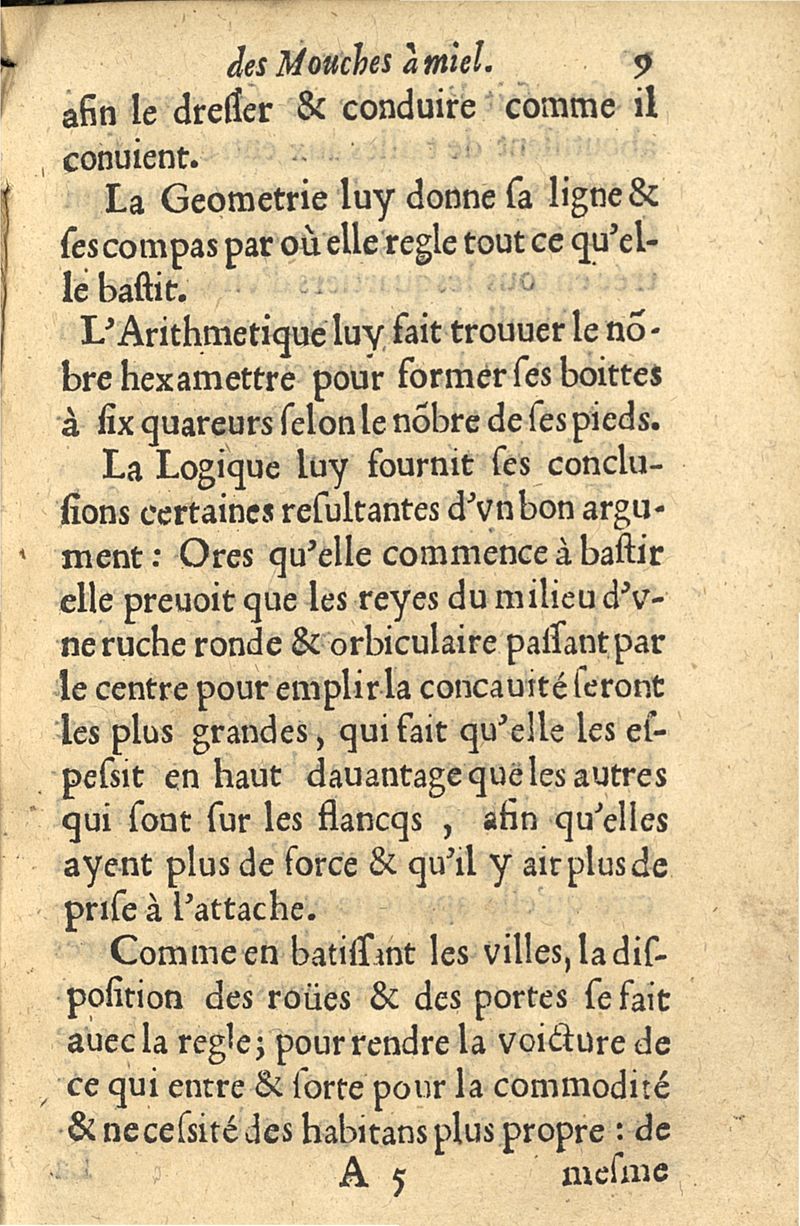 des Mouches à miel. 9
afin le dreſſer & conduire comme il
conuient.
La Geometrie luy donne ſa ligne &
ſes compas par où elle regle tout ce qu'el-
le baſtit.
L'Arithmetique luy fait trouuer le nõ-
bre hexamettre pour former ſes boittes
à ſix quareurs ſelon le nõbre de ſes pieds.
La Logique luy fournit ſes conclu-
ſions certaines reſultantes d'vn bon argu-
ment : Ores qu'elle commence à baſtir
elle preuoit que les reyes du milieu d'v-
ne ruche ronde & orbiculaire paſſant par
le centre pour emplir la concauité ſeront
les plus grandes, qui fait qu'elle les eſ-
peſsit en haut dauantage que les autres
qui ſont ſur les flancqs , afin qu'elles
ayent plus de force & qu'il y ait plus de
priſe à l'attache.
Comme en batiſſant les villes, la diſ-
poſition des roües & des portes ſe fait
auec la regle; pour rendre la voicture de
ce qui entre & ſorte pour la commodité
& neceſsité des habitans plus propre : de
A 5 meſme